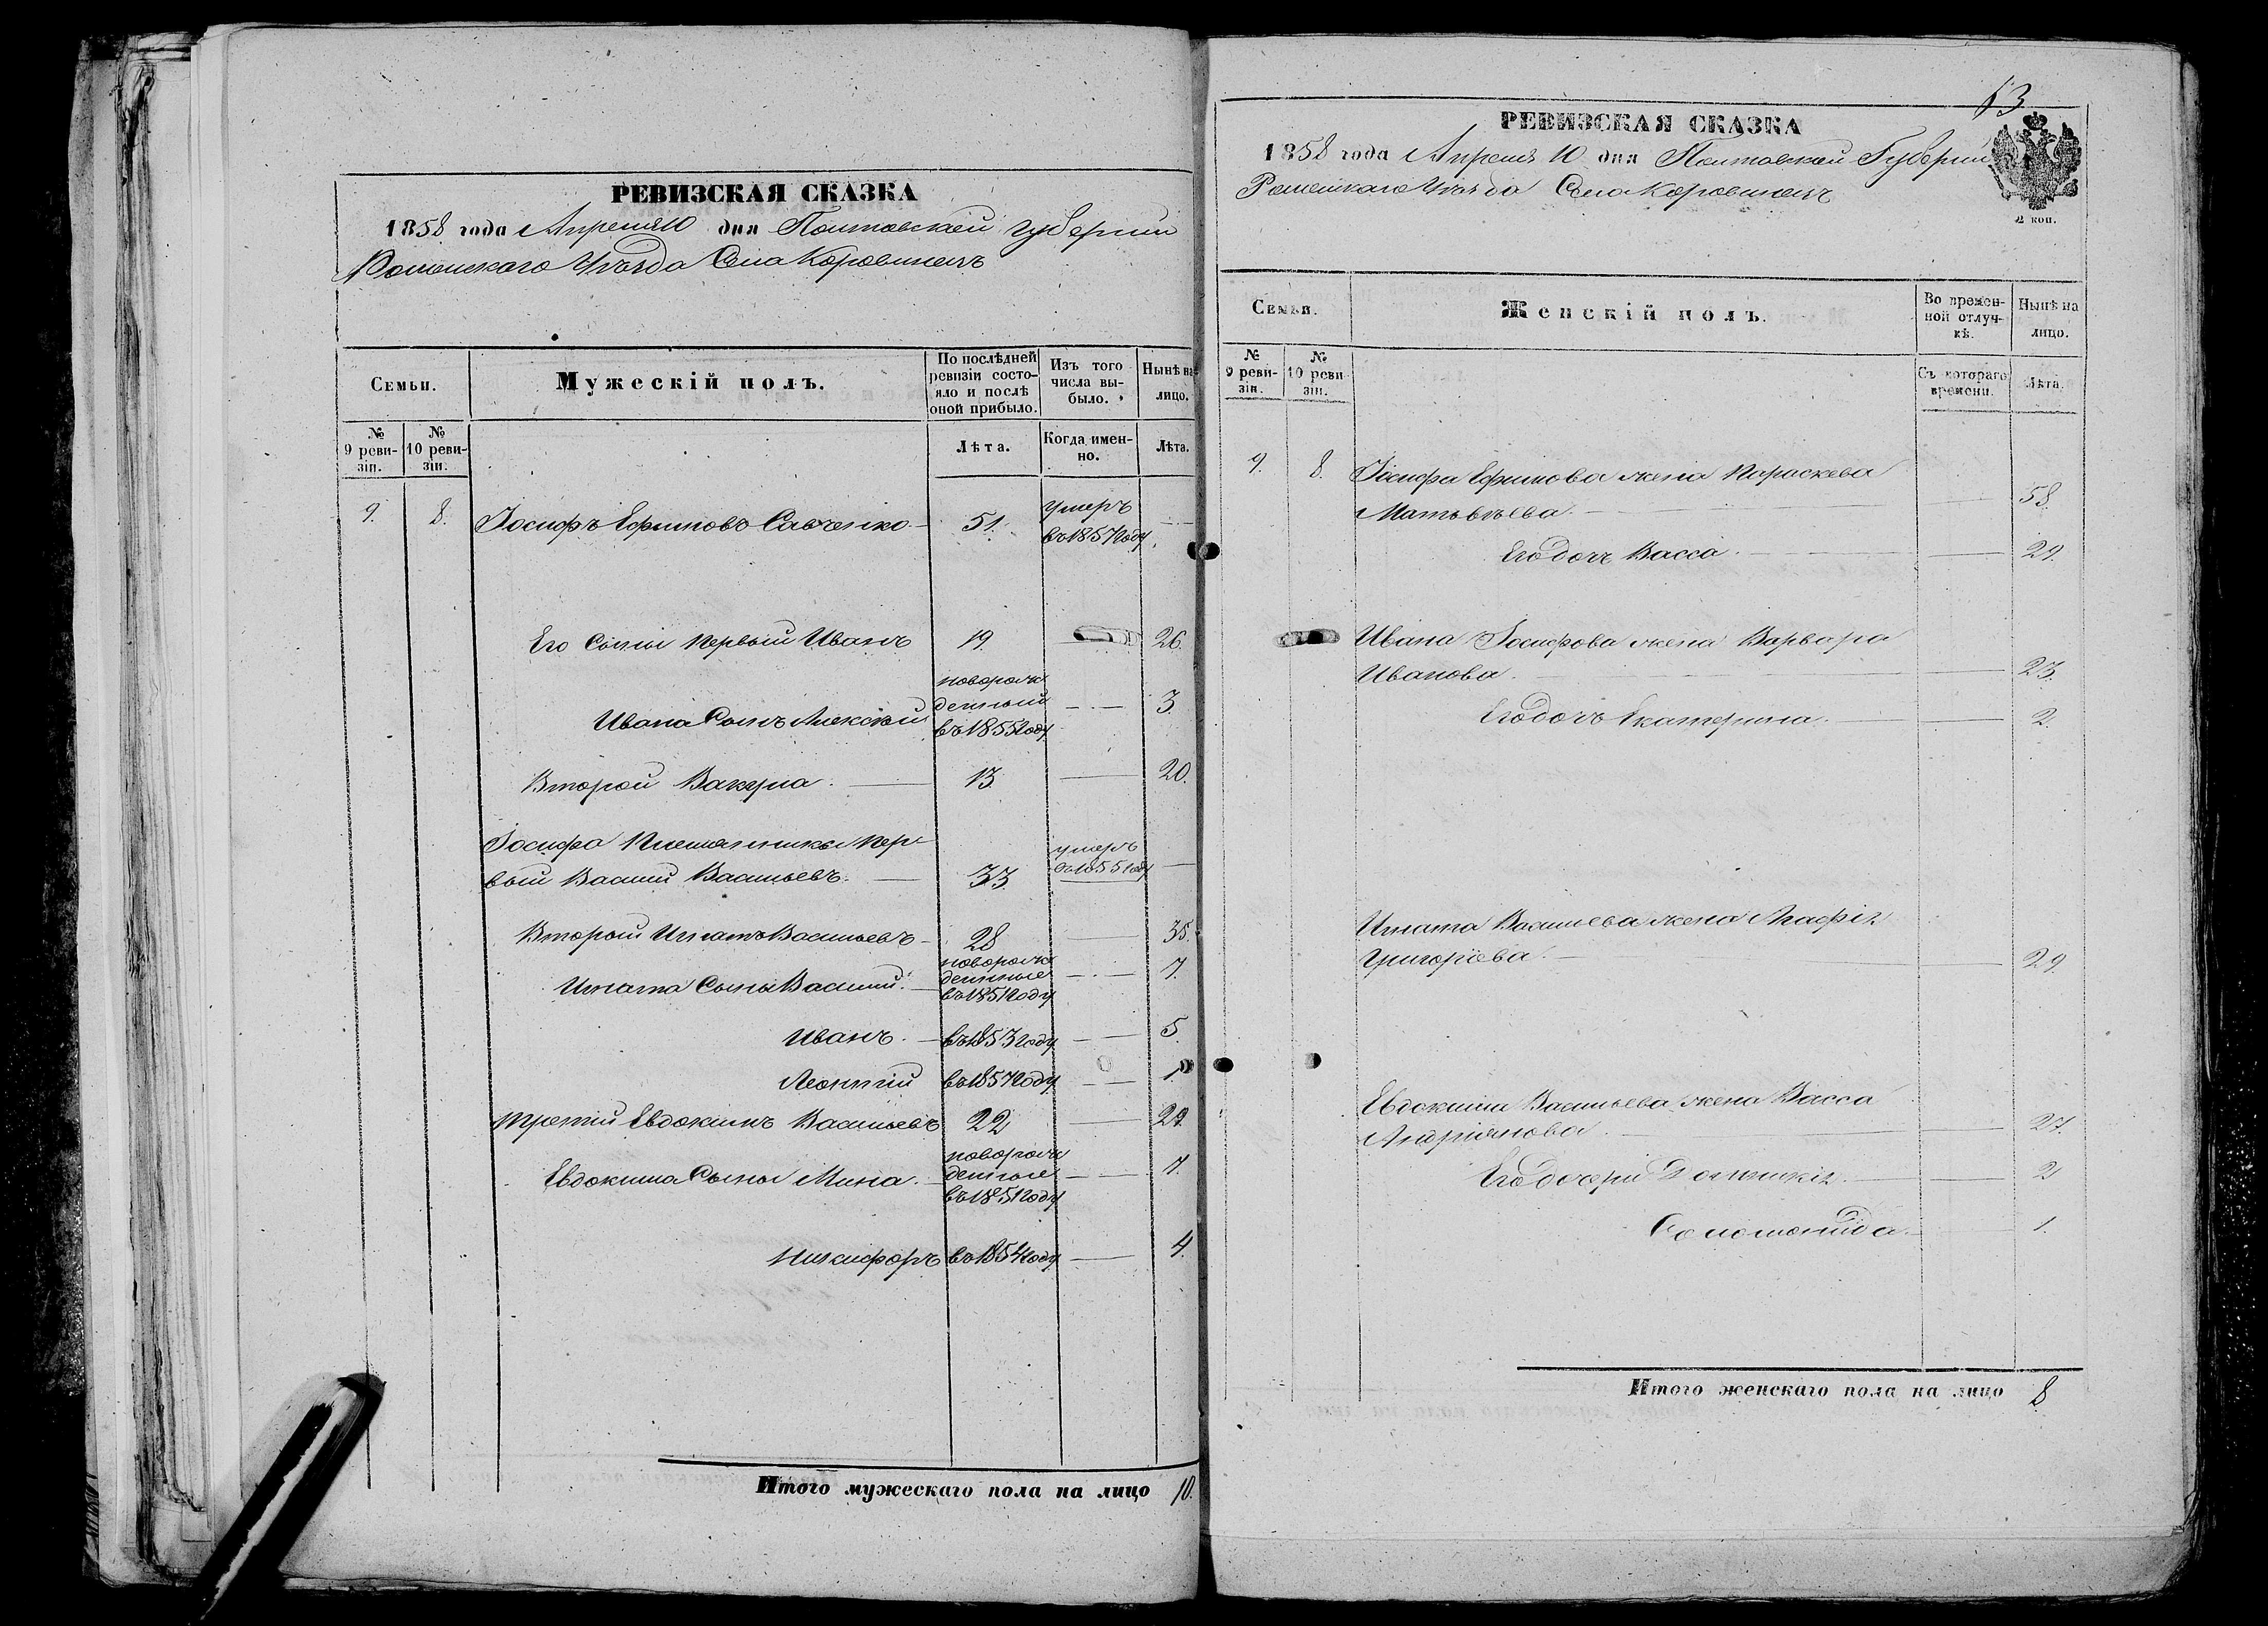 РЕВИЗСКАЯ СКАЗКА
1858 года Апреля 10 дня Полтавской губернии
Роменскаго Уѣзда Села Коровинецъ
Семьи.
Мужескій полъ.
По послѣдней ревизіи состояло и послѣ оной прибыло.
Изъ того числа выбыло.
Нынѣ на лицо.
№ 9 ревизіи.
№ 10 ревизіи.
Лѣта.
Когда именно.
Лѣта.
9. 8. Іосифъ Ефимовъ Савченко 51. умеръ въ 1857 году
Его Сыны первый Иванъ 19. 26.
Ивана Сынъ Алексѣй новорожденный въ 1855 году 3.
Второй Вакула 13 20.
Іосифа Племянники Пер-
вый Василий Васильевъ. 33 умеръ въ 1855 году
Второй Игнатъ Васильевъ 28 35.
Игната Сыны Василий новорожденные въ 1851 году 7.
Иванъ въ 1853 году 5.
Леонтий въ 1857 году 1.
третий Евдокимъ Васильевъ 22 29.
Евдокима Сыны Мина новорожденные въ 1851 году 7.
Никифоръ въ 1854 году 4.
Итого мужескаго пола на лицо 10.
53
РЕВИЗСКАЯ СКАЗКА
1858 года Апреля 10 дня Полтавской Губернии
Роменскаго Уѣзда Села Коровинецъ
2 коп.
Семьи.
Женскій полъ.
Во временной отлучкѣ.
Нынѣ на лицо.
№ 9 ревизіи.
№ 10 ревизіи.
Съ котораго времени.
Лѣта.
9. 8. Іосифа Ефимова жена Параскева
Матвѣева. 58.
Его дочь Васса 29.
Ивана Іосифова жена Варвара
Иванова 23.
Его дочь Екатерина 2.
Игната Васильева жена Агафія
Григоріева 29.
Евдокима Васильева жена Васса
Андріянова 27.
Его дочери Домникія 2
Соломонида 1.
Итого женскаго пола на лицо 8